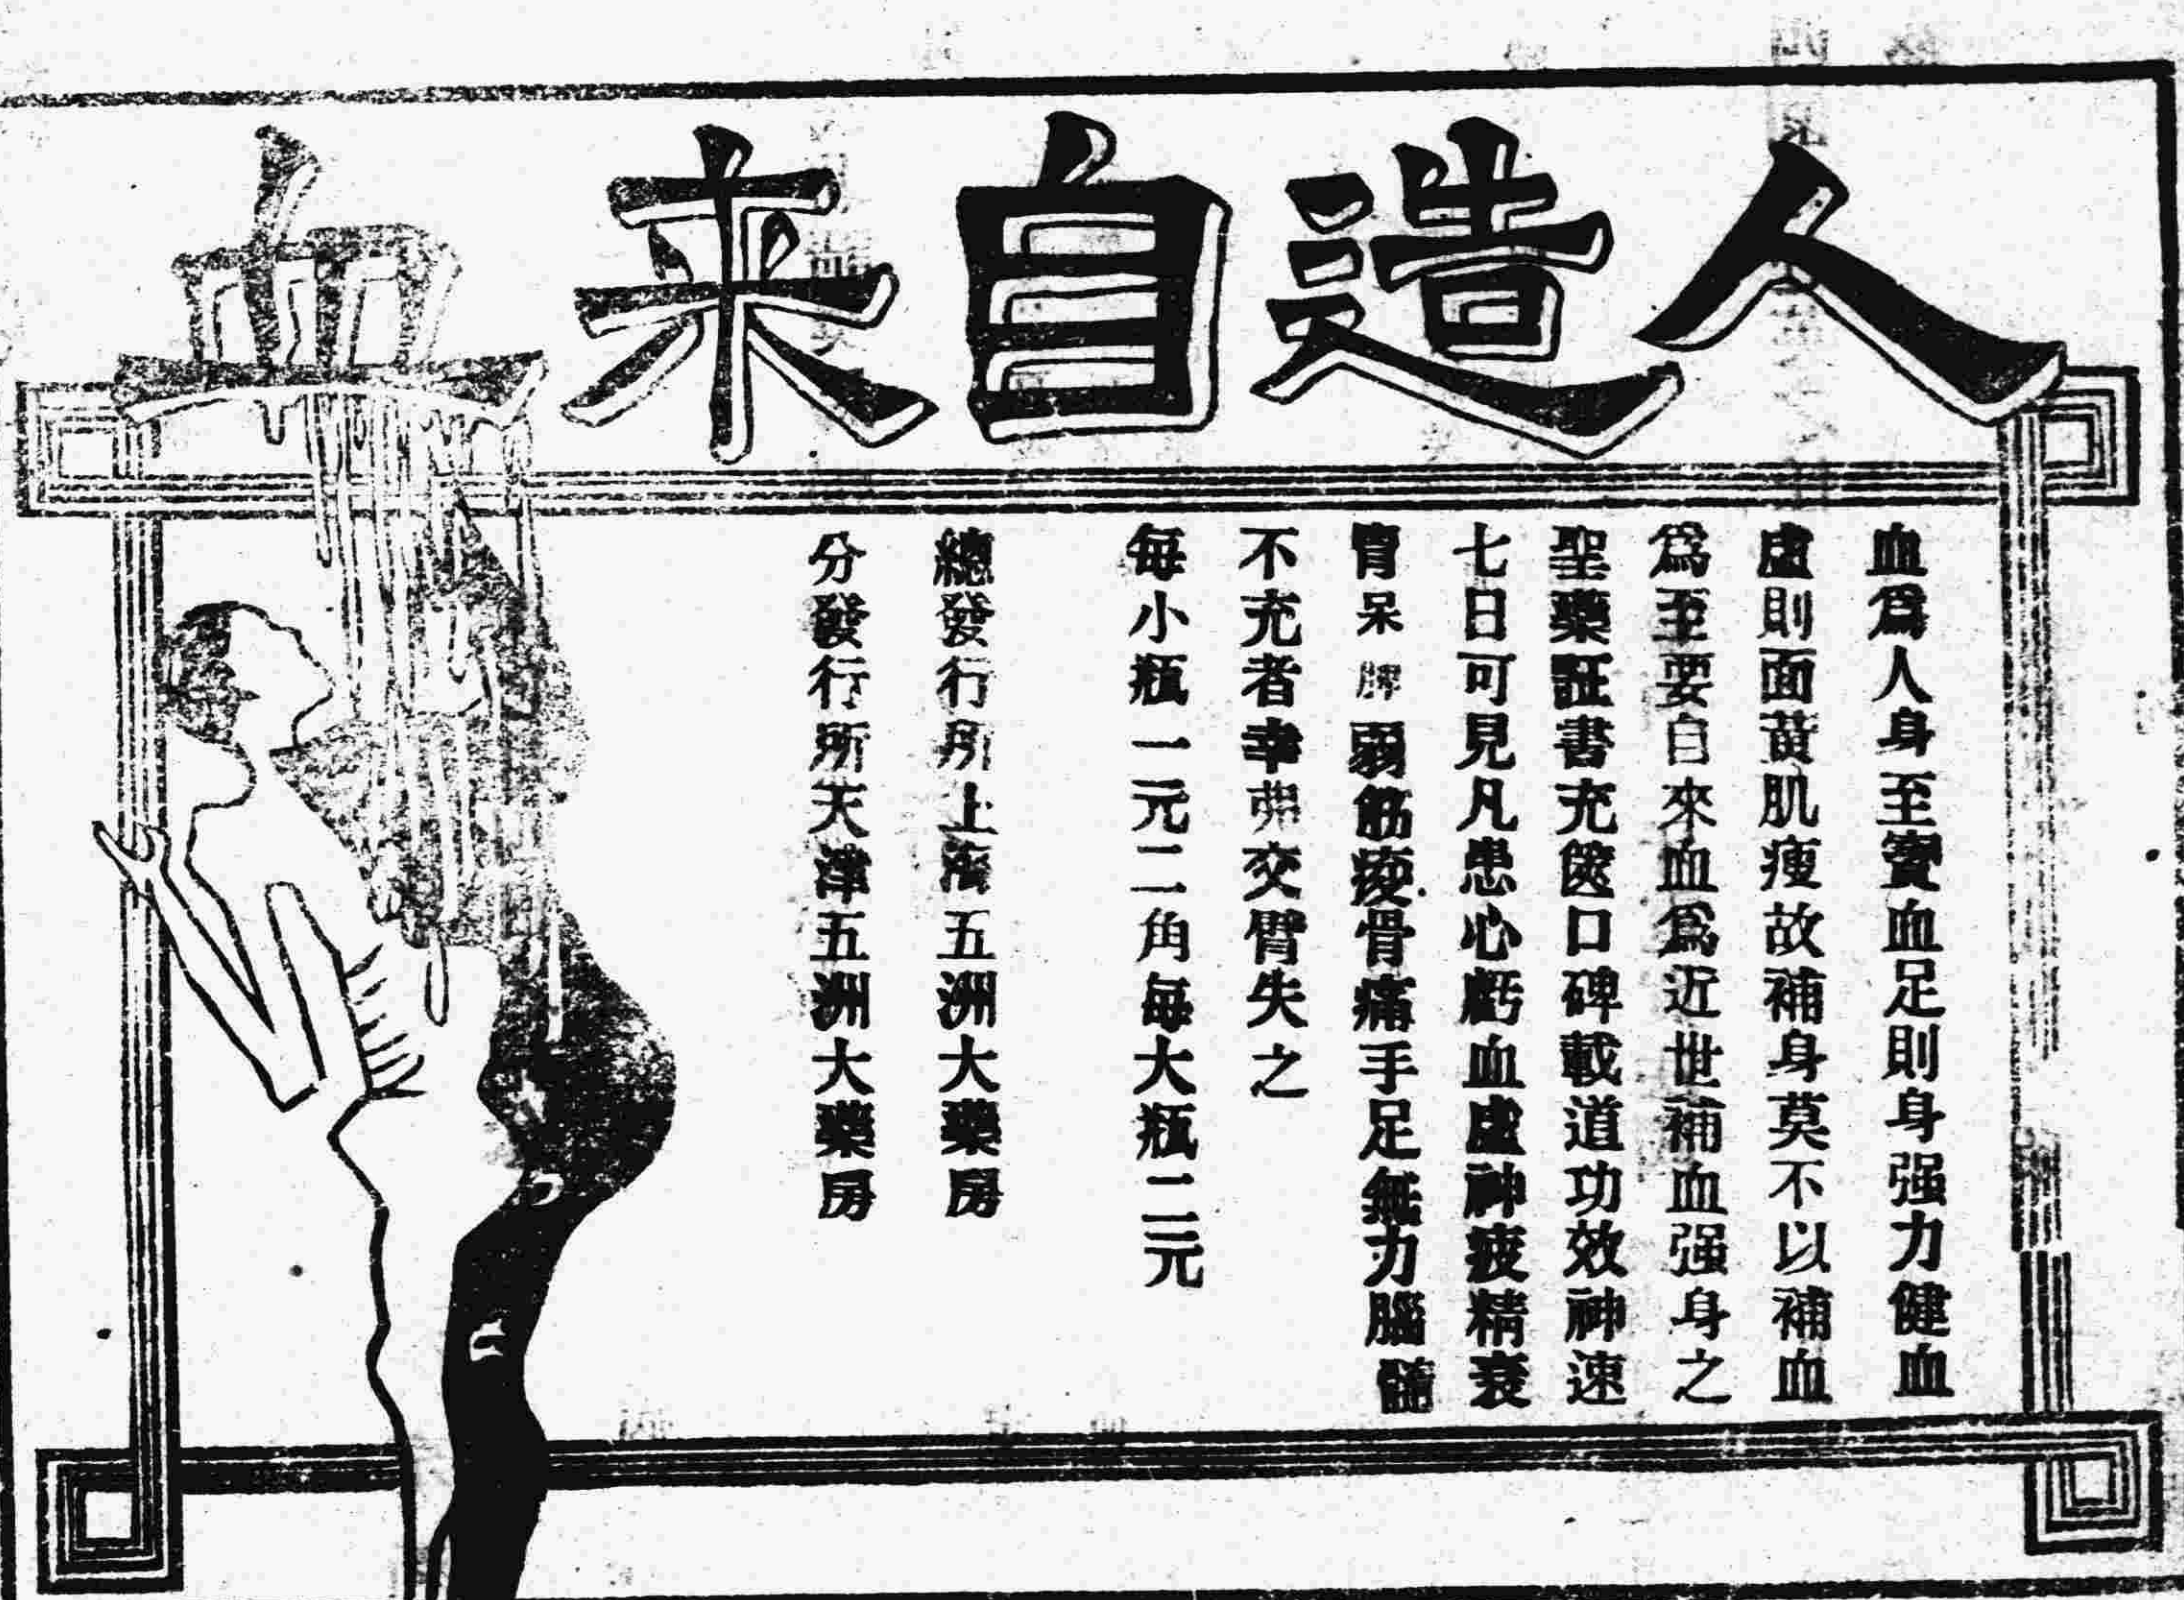 人造自来血
血爲人身至寳血足則身强力健血
虛則面黃肌瘦故補身莫不以補血
爲至要自來血爲近世補血强身之
聖藥証書充篋口碑載道功效神速
七日可見凡患心虧血虛神疲精衰
胃呆脾弱筋痠骨痛手足無力腦髓
不充者幸弗交臂失之
每小瓶一元二角每大瓶二元
總發行所上海五洲大藥房
分發行所天津五洲大藥房